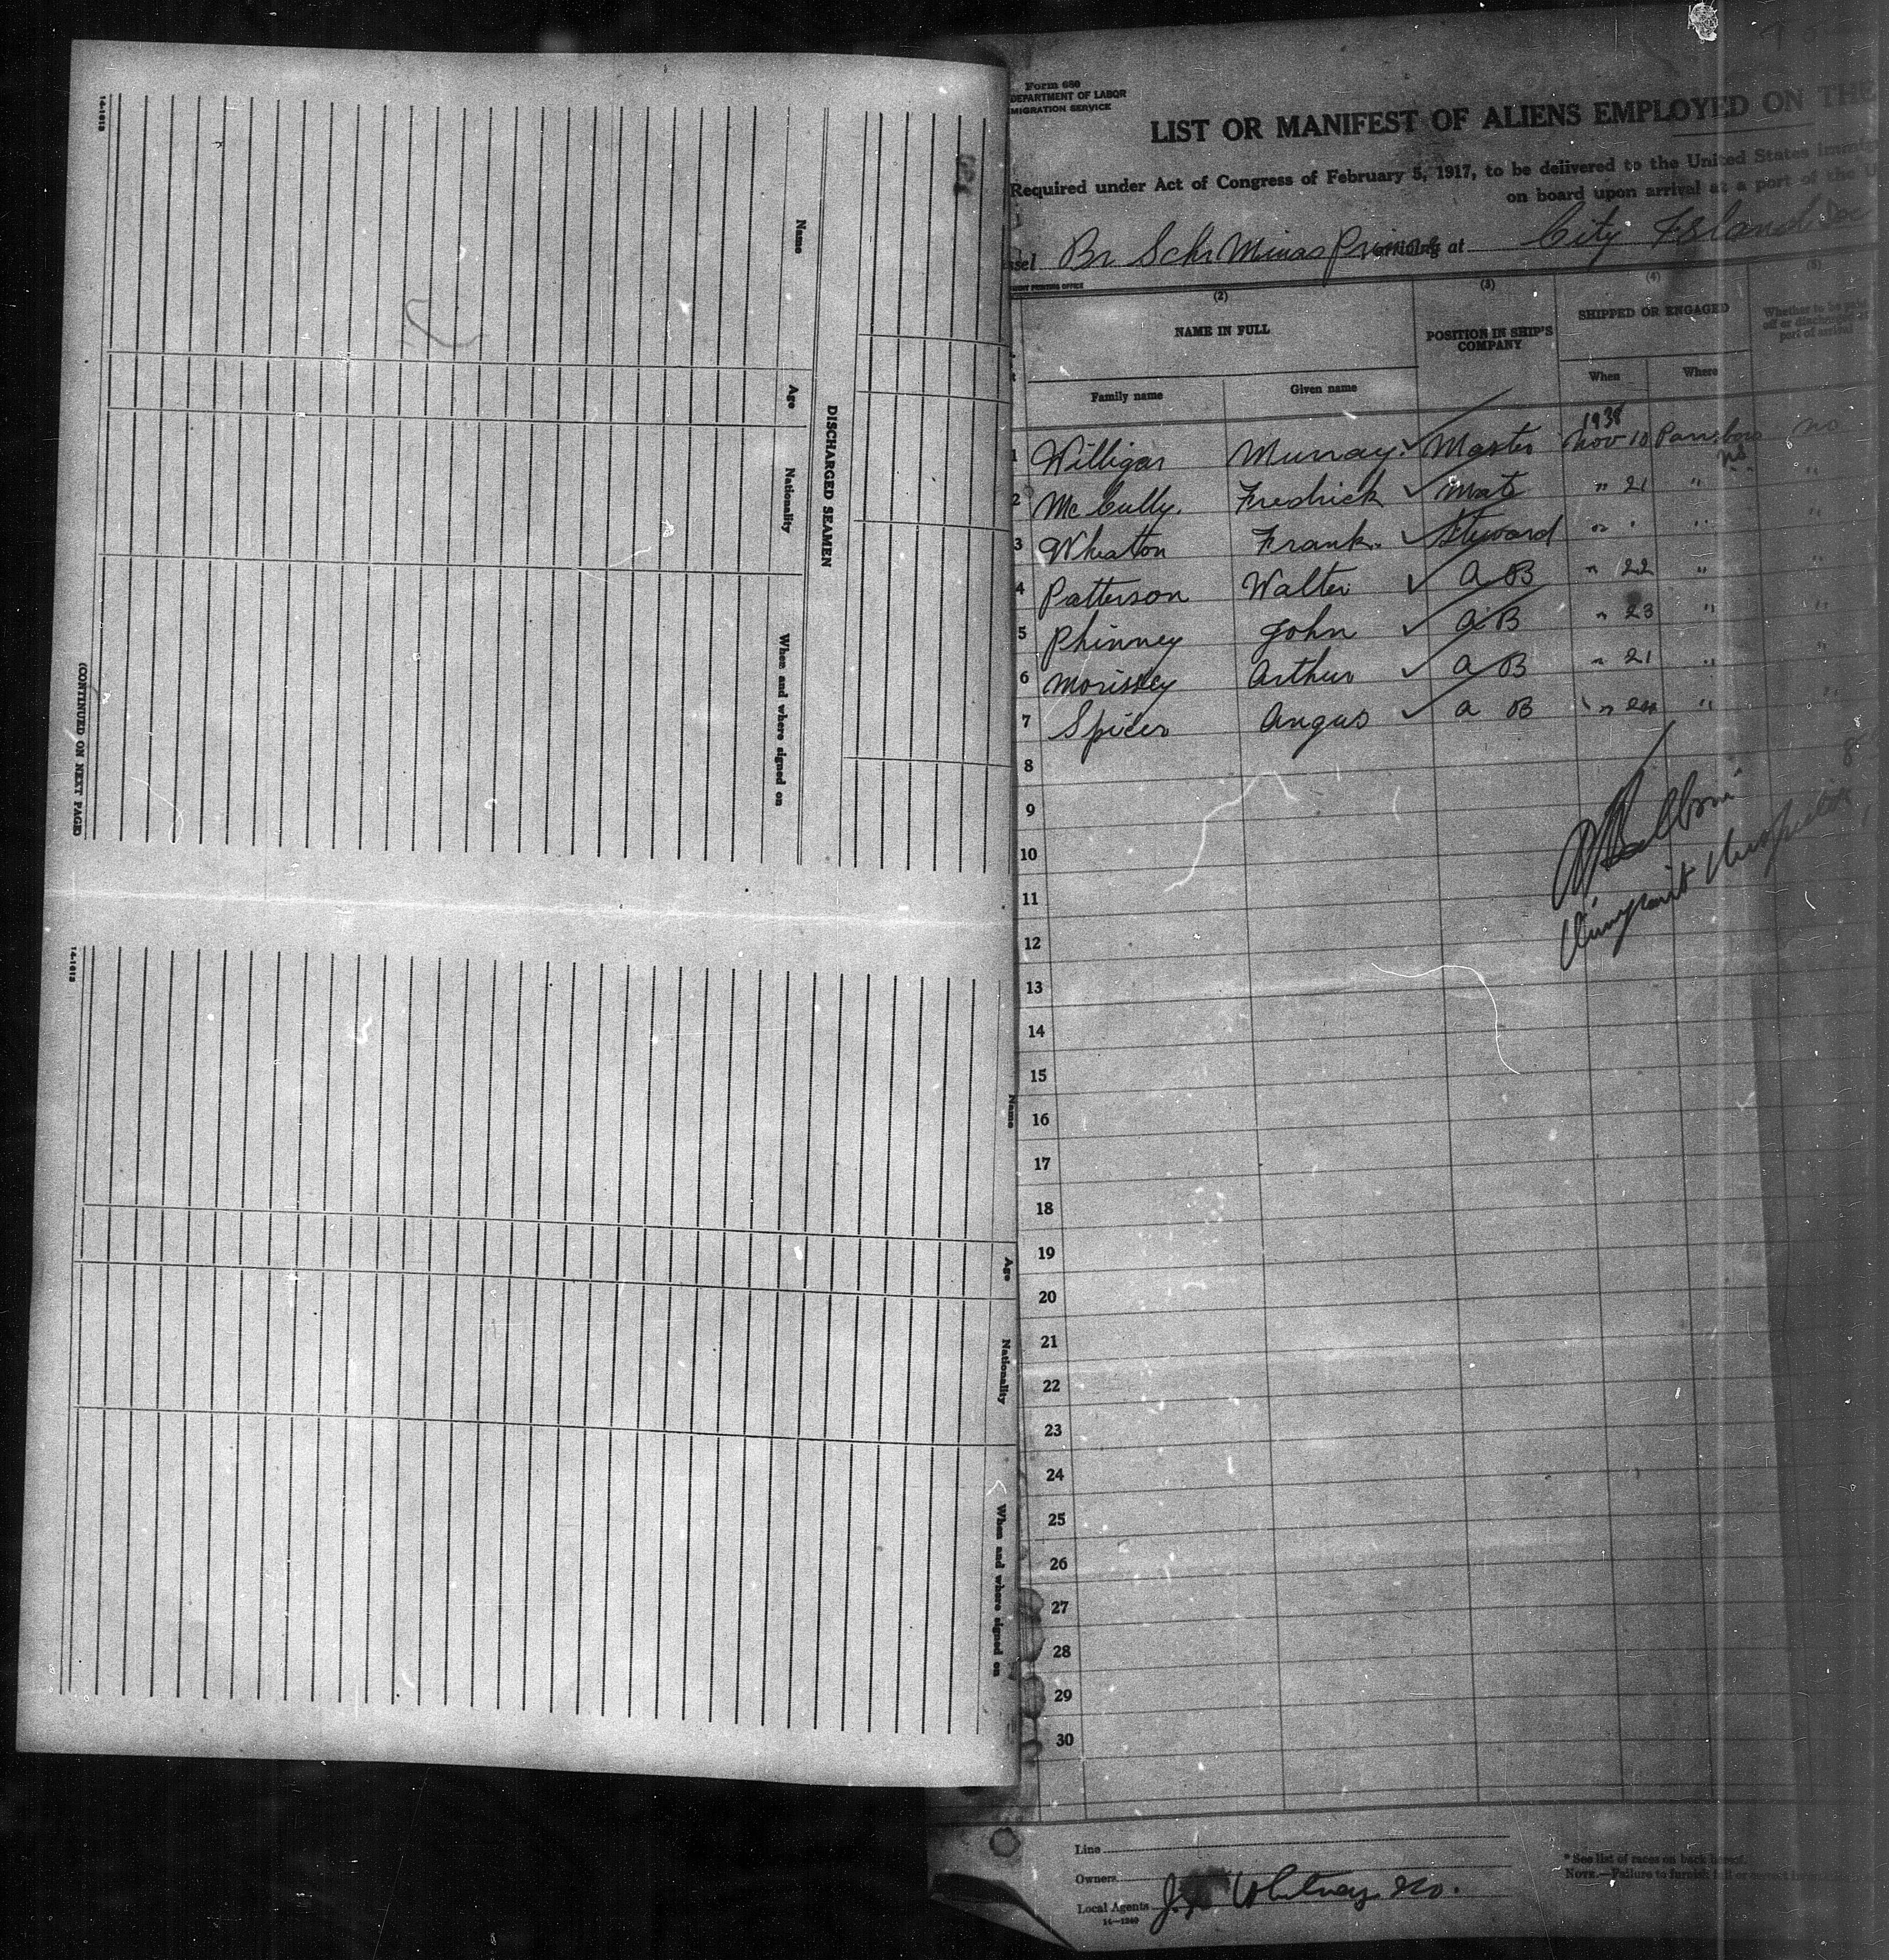 14-1913
Name
Age
Nationality
When and where signed on
DISCHARGED SEAMEN
(CONTINUED ON NEXT PAGE)
14-1913
Name
Age
Nationality
When and where signed on
Form 680
DEPARTMENT OF LABOR
MIGRATION SERVICE
LIST OR MANIFEST OF ALIENS EMPLOYED ON THE
Required under Act of Congress of February 5, 1917, to be delivered to the United States Immig
on board upon arrival at a port of the U
ssel Br Schr Minas Prince arriving at City Island
MENT PRINTING OFFICE
(2) (3) (4) (5)
NAME IN FULL POSITION IN SHIP'S COMPANY SHIPPED OR ENGAGED Whether to be paid off or discharged at port of arrival
Family name Given name When Where
1938
1 Willigar Murray Master Nov 10 Parrsboro NS no
2 McCully. Fredrick Mate " 21 " "
3 Wheaton Frank. Steward " " " "
4 Patterson Walter A B " 22 " "
5 Phinney John A B " 23 " "
6 Morissey Arthur A B " 21 " "
7 Spicer Angus A B " 24 " "
8
9
10
Immigrant Inspector
11
12
13
14
15
16
17
18
19
20
21
22
23
24
25
26
27
28
29
30
Line
Owners
Local Agents J. Whitney & Co.
14-1240
* See list of races on back hereof.
NOTE.—Failure to furnish full or correct